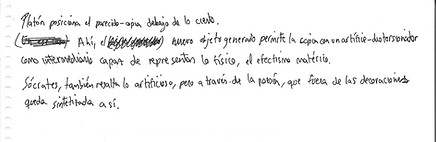 Platón posiciona el parecido-copia debajo de lo cierto.
Ahí, el nuevo objeto generado permite la copia con un artificio-distorsionador
como intermediario capaz de representar lo físico, el efectismo matérico.
Sócrates, también resalta lo artificioso, pero a través de la poesía, que fuera de las decoraciones
queda sintetizada así.